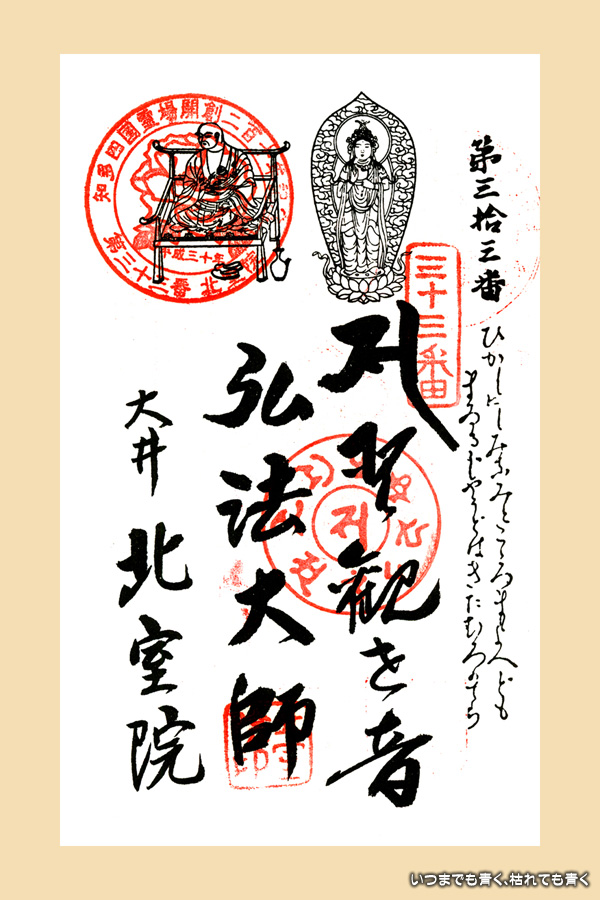 第三拾三番
ひかしにしみなみとこゝろまよへども
まゐるじやうどはきたむろのてら
三十三番
聖観世音
弘法大師
大井 北室院
知多四國靈場開創二百
平成三十年
第三十三番北室院
いつまでも青く、枯れても青く